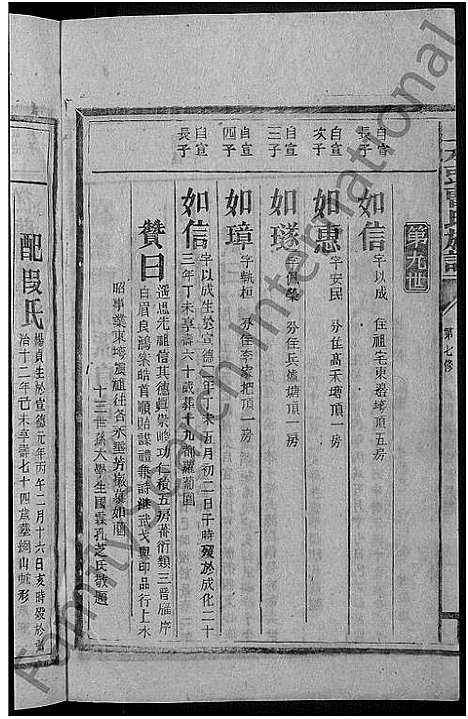 第九世
第七修
自宣長子
如信
字以成 住祖宅東塆塝頂五房
自宣次子
如惠
字安民 分住高禾塘頂一房
自宣三子
如璲
分住兵爐塘頂一房
自宣四子
如璋
字執桓 分住李家把頂一房
自宣長子
如信
字以成生於宣德二年丁未五月初二日子時歿於成化二十
三年丁未享壽六十歲葬十九都蘿蔔園
贊曰
遙思先祖信其德眞崇峰功仁積五房蕃衍類三晉雁序
白眉良鴻案皓首順貽謀禮樂詩繼武戈聖印品行上水
昭事業東塆震祖社各承墨芳徽慕如園
十三世孫大學生國霖孔芝氏敬題
配段氏
楊貞生於宣德元年丙午二月十六日亥時歿於
治十二年己未享壽七十四歲墓獅山虵形
Family Search International